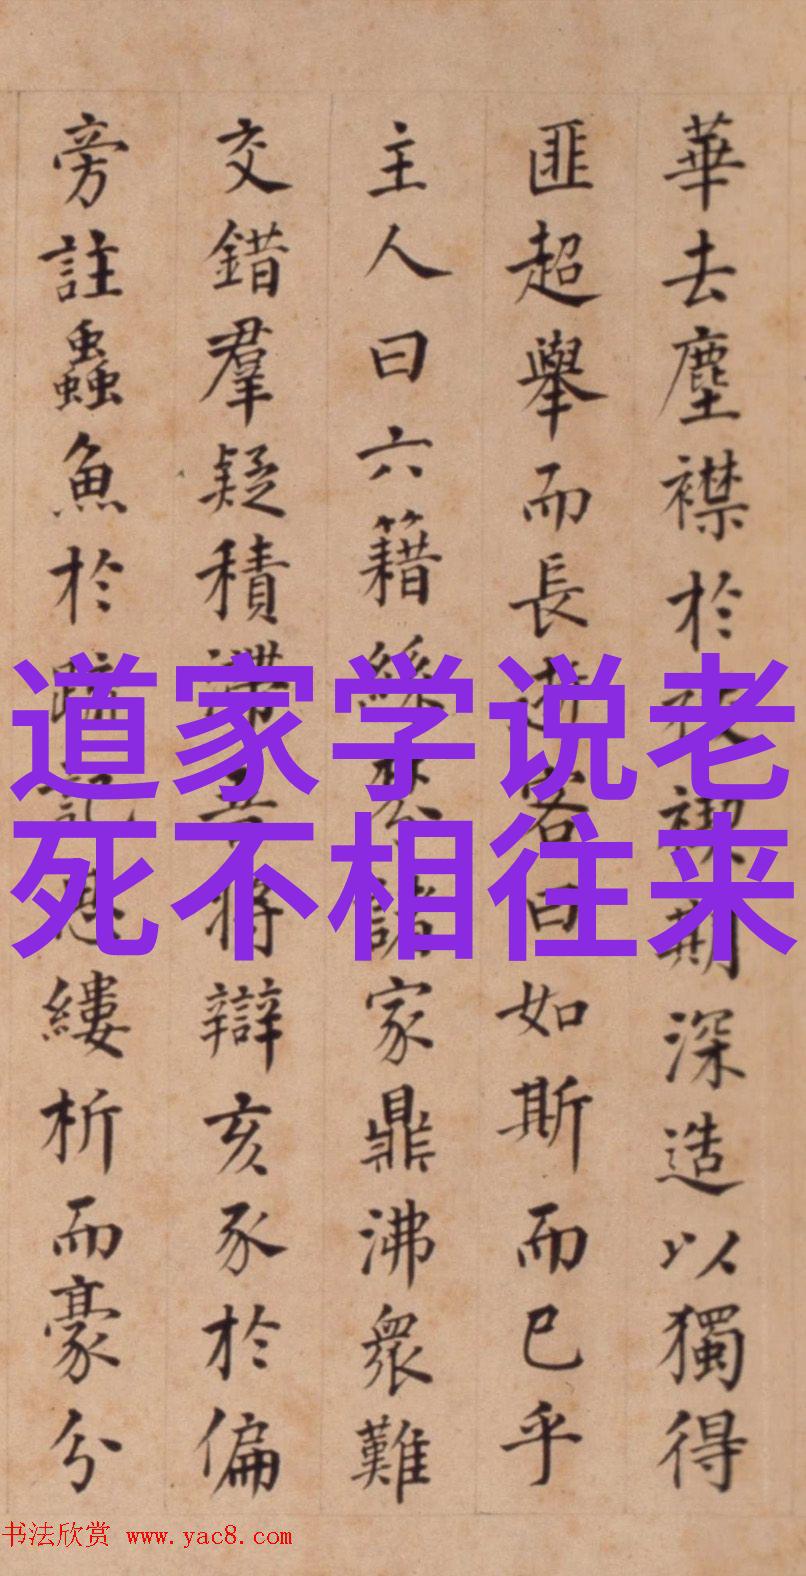 華去塵襟於禊期深造以獨得
匪超舉而長客曰如斯而已乎
主人曰六籍諸家鼎沸衆難
交錯羣疑積滯將辯亥豕於偏
旁註蟲魚於疏記縷析而豪分
道家学说老
死不相往来
书法欣赏 www.yac8.com